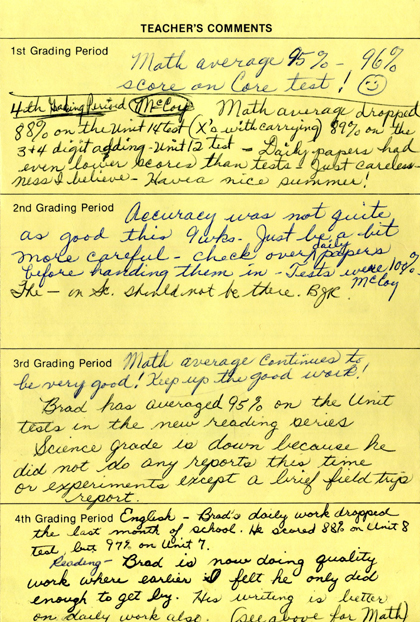 TEACHER'S COMMENTS
1st Grading Period
Math average 95% - 96%
score on Core test! ☺
4th Grading Period McCoy Math average dropped
88% on the Unit 14 test (X's with carrying) 89% on the
3+4 digit adding - Unit 12 test - Daily papers had
even lower scores than tests - Just careless-
ness I believe - Have a nice summer!
2nd Grading Period
Accuracy was not quite
as good this 9 wks. Just be a bit
more careful - check over daily papers
before handing them in - Tests were 100%
McCoy
The - in Sc. should not be there. BJR
3rd Grading Period
Math average continues to
be very good! Keep up the good work!
Brad has averaged 95% on the Unit
tests in the new reading series
Science grade is down because he
did not do any reports this time
or experiments except a brief field trip
report.
4th Grading Period
English - Brad's daily work dropped
the last month of school. He scored 88% on Unit 8
test, but 97% on Unit 7.
Reading - Brad is now doing quality
work where earlier I felt he only did
enough to get by. His writing is better
on daily work also. (see above for Math)